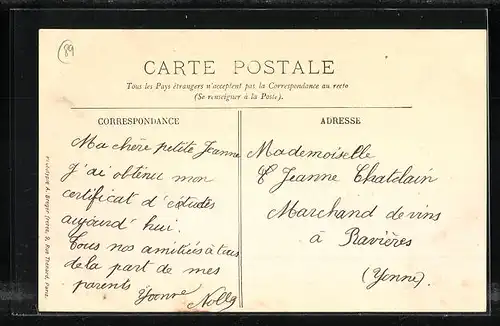 89
CARTE POSTALE
Tous les Pays étrangers n'acceptent pas la Correspondance au recto
(Se renseigner à la Poste).
CORRESPONDANCE
Ma chère petite Jeanne
j'ai obtenu mon
certificat d'études
aujourd'hui.
Tous nos amitiés à tous
de la part de mes
parents
Yvonne Nolly
ADRESSE
Mademoiselle
Jeanne Chatelain
Marchand de vins
à Ravières
(Yonne).
A. Breger frères, 9, Rue Thénard, Paris.